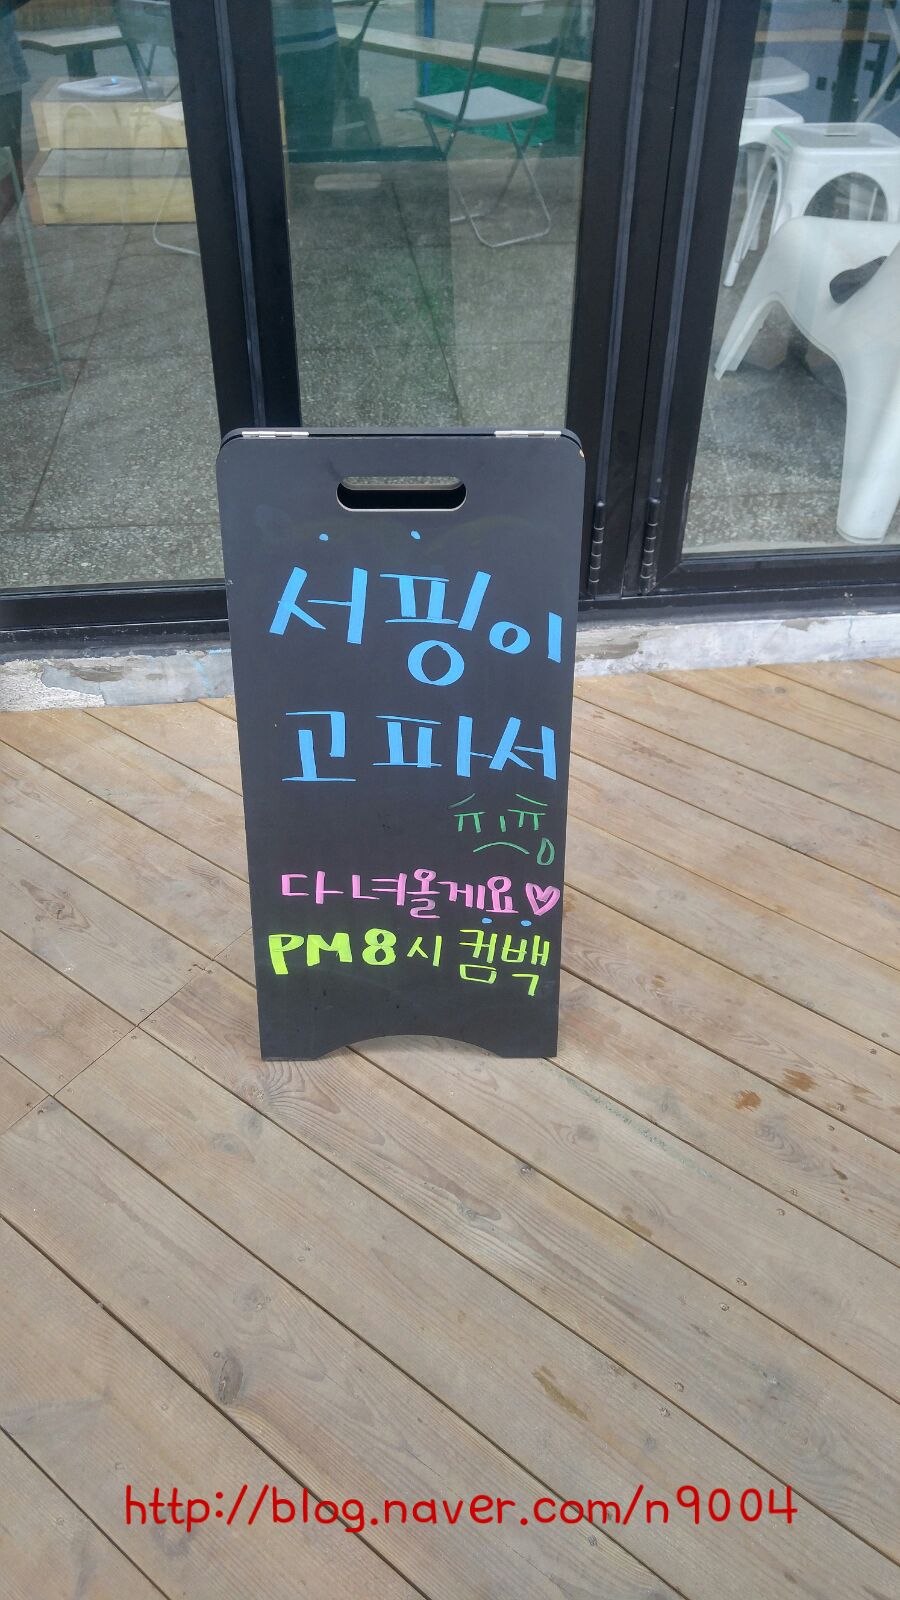 서핑이
고파서
ㅠㅣㅠ
다녀올게요♡
PM 8시 컴백
http://blog.naver.com/n9004